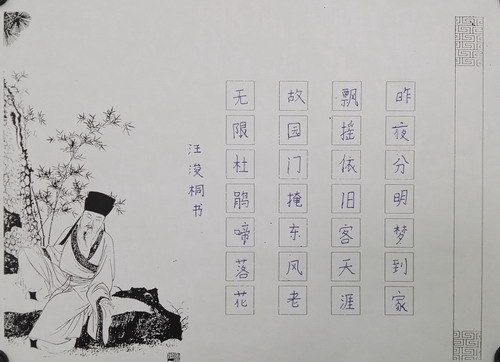 昨夜分明梦到家
飘摇依旧客天涯
故园门掩东风老
无限杜鹃啼落花
汪浚桐书